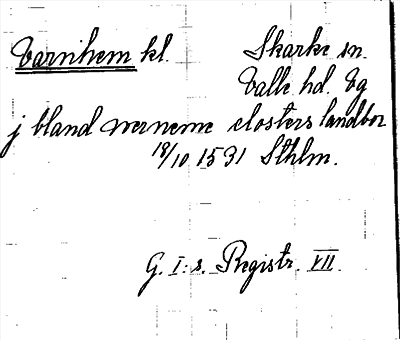 Varnhem kl. Skarke sn.
Valle hd. Vg
j bland werneme closters landbor
18/10 1531 Sthlm.
G. I:s. Registr. VII.